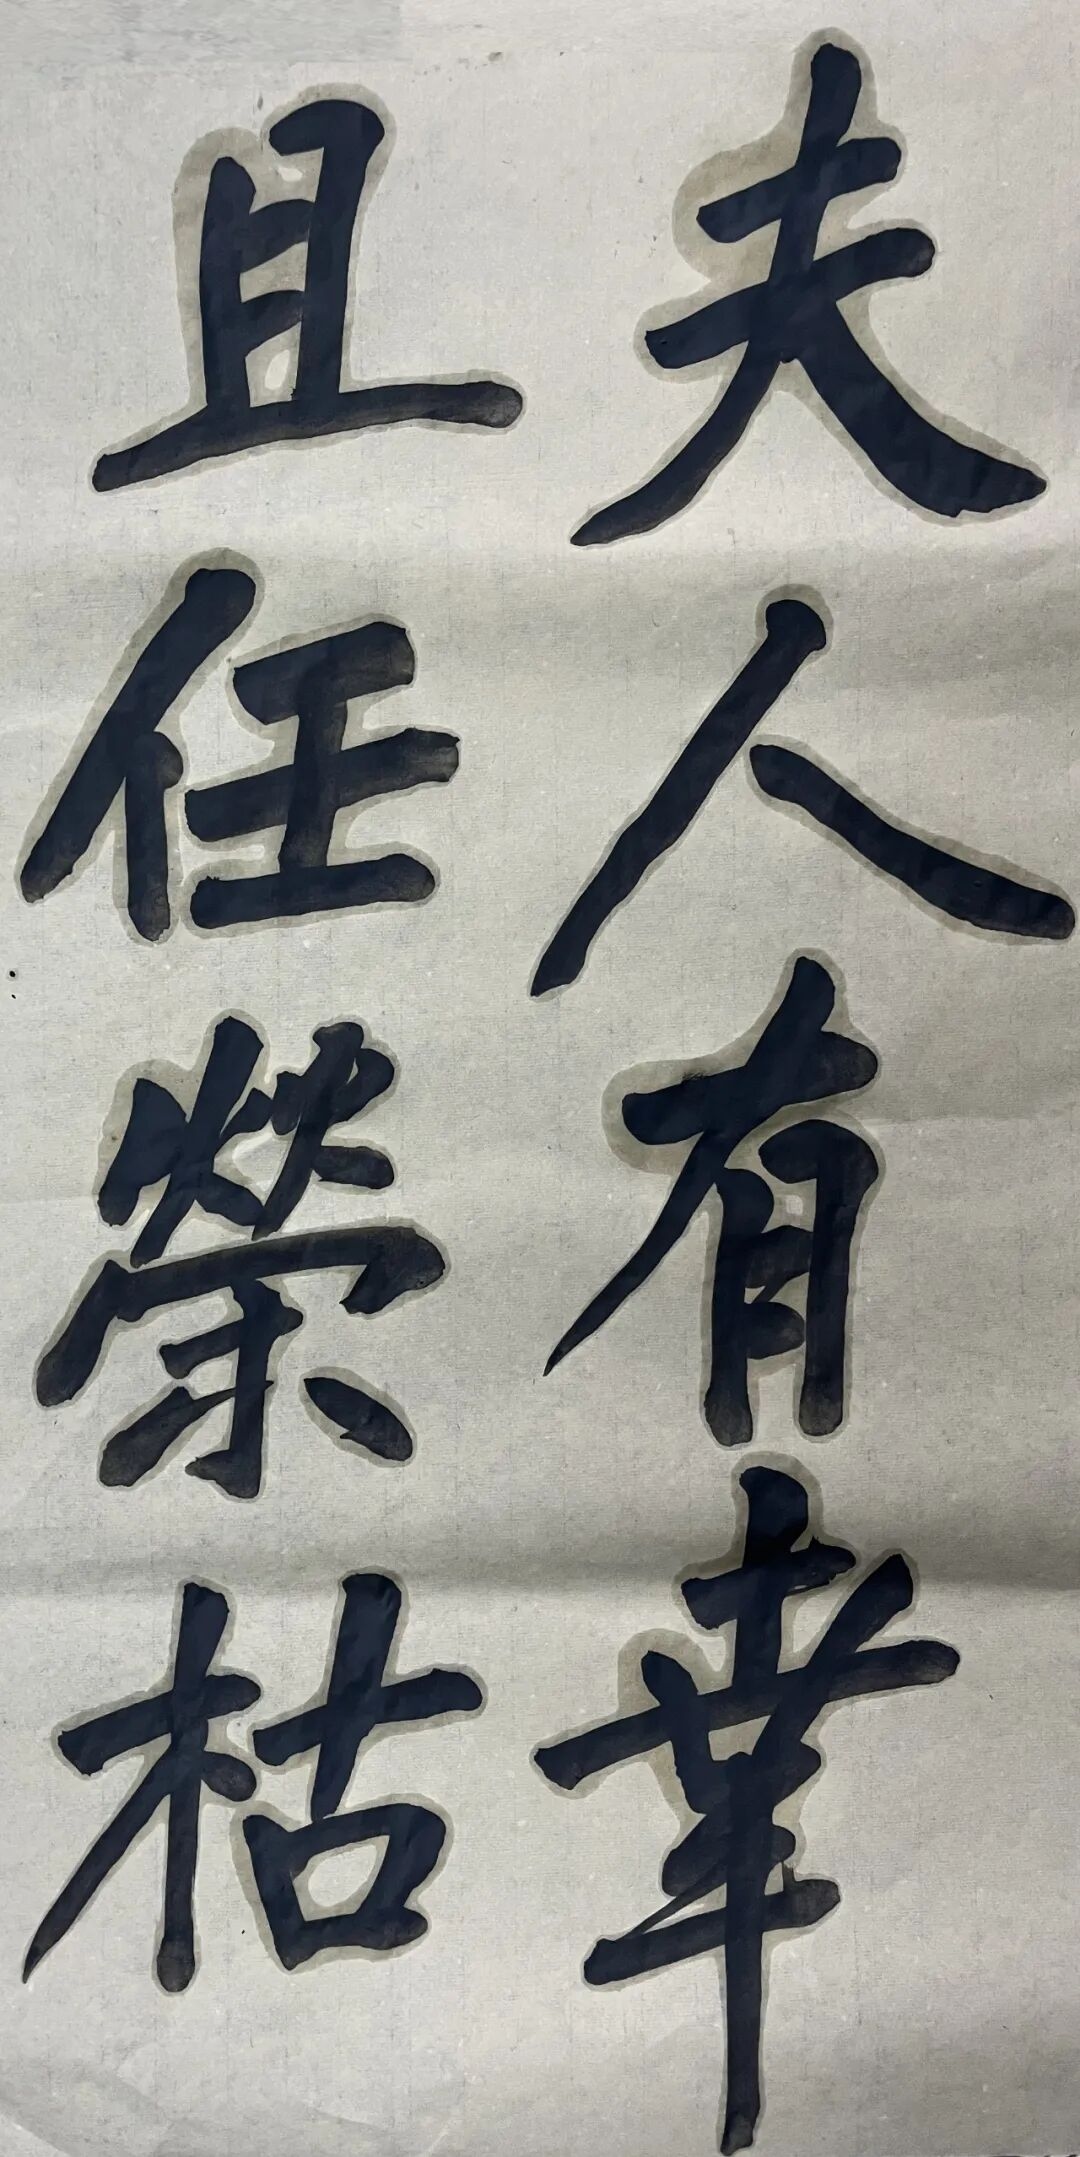 夫人有幸
且任榮枯